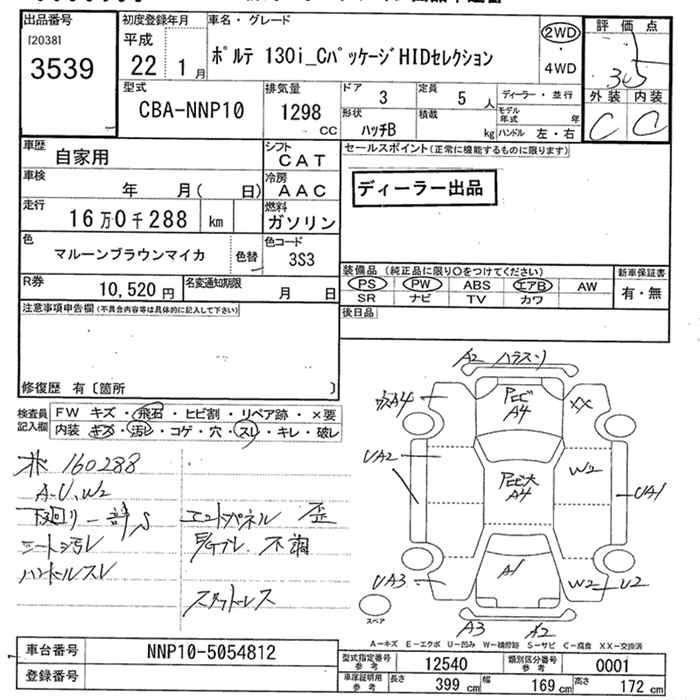 出品番号
[20381
3539
初度登録年月
平成
22 1月
車名・グレード
ポルテ 130i_CパッケージHIDセレクション
2WD
・
4WD
評価点
外装 内装
C C
型式
CBA-NNP10
排気量
1298
CC
ドア 3
定員 5 人
ディーラー・並行
形状
ハッチB
積載
kg
モデル年式 年
ハンドル 左・右
車歴
自家用
シフト
CAT
セールスポイント(正常に機能するものに限ります)
ディーラー出品
車検
年 月( 日)
冷房
AAC
走行
16万0千288 km
燃料
ガソリン
色
マルーンブラウンマイカ
色替
色コード
3S3
R券
10,520円
名変通知期限
月 日
装備品(純正品に限り○をつけてください)
PS PW ABS エアB AW
SR ナビ TV カワ
新車保証書
有・無
後日品
注意事項申告欄(不具合内容等は具体的に記入して下さい)
修復歴 有〔箇所 〕
検査員
記入欄
FW キズ・飛石・ヒビ割・リペア跡・×要
内装 キズ・汚レ・コゲ・穴・スレ・キレ・破レ
160288
A-U、W2
下廻リ
シート汚レ
ハンドルスレ
エンドパネル 歪
不調
スタッドレス
A2
A4
A4
XX
UA2
W2
A4
UA1
UA3
A1
W2
U2
A3
A2
スペア
A-キズ E-エクボ U-凹み W-補修跡 S-サビ C-腐食 XX-交換済
車台番号
NNP10-5054812
登録番号
型式指定番号
参考
12540
類別区分番号
参考
0001
車庫証明用
参考
長さ 399 cm
幅 169 cm
高さ 172 cm